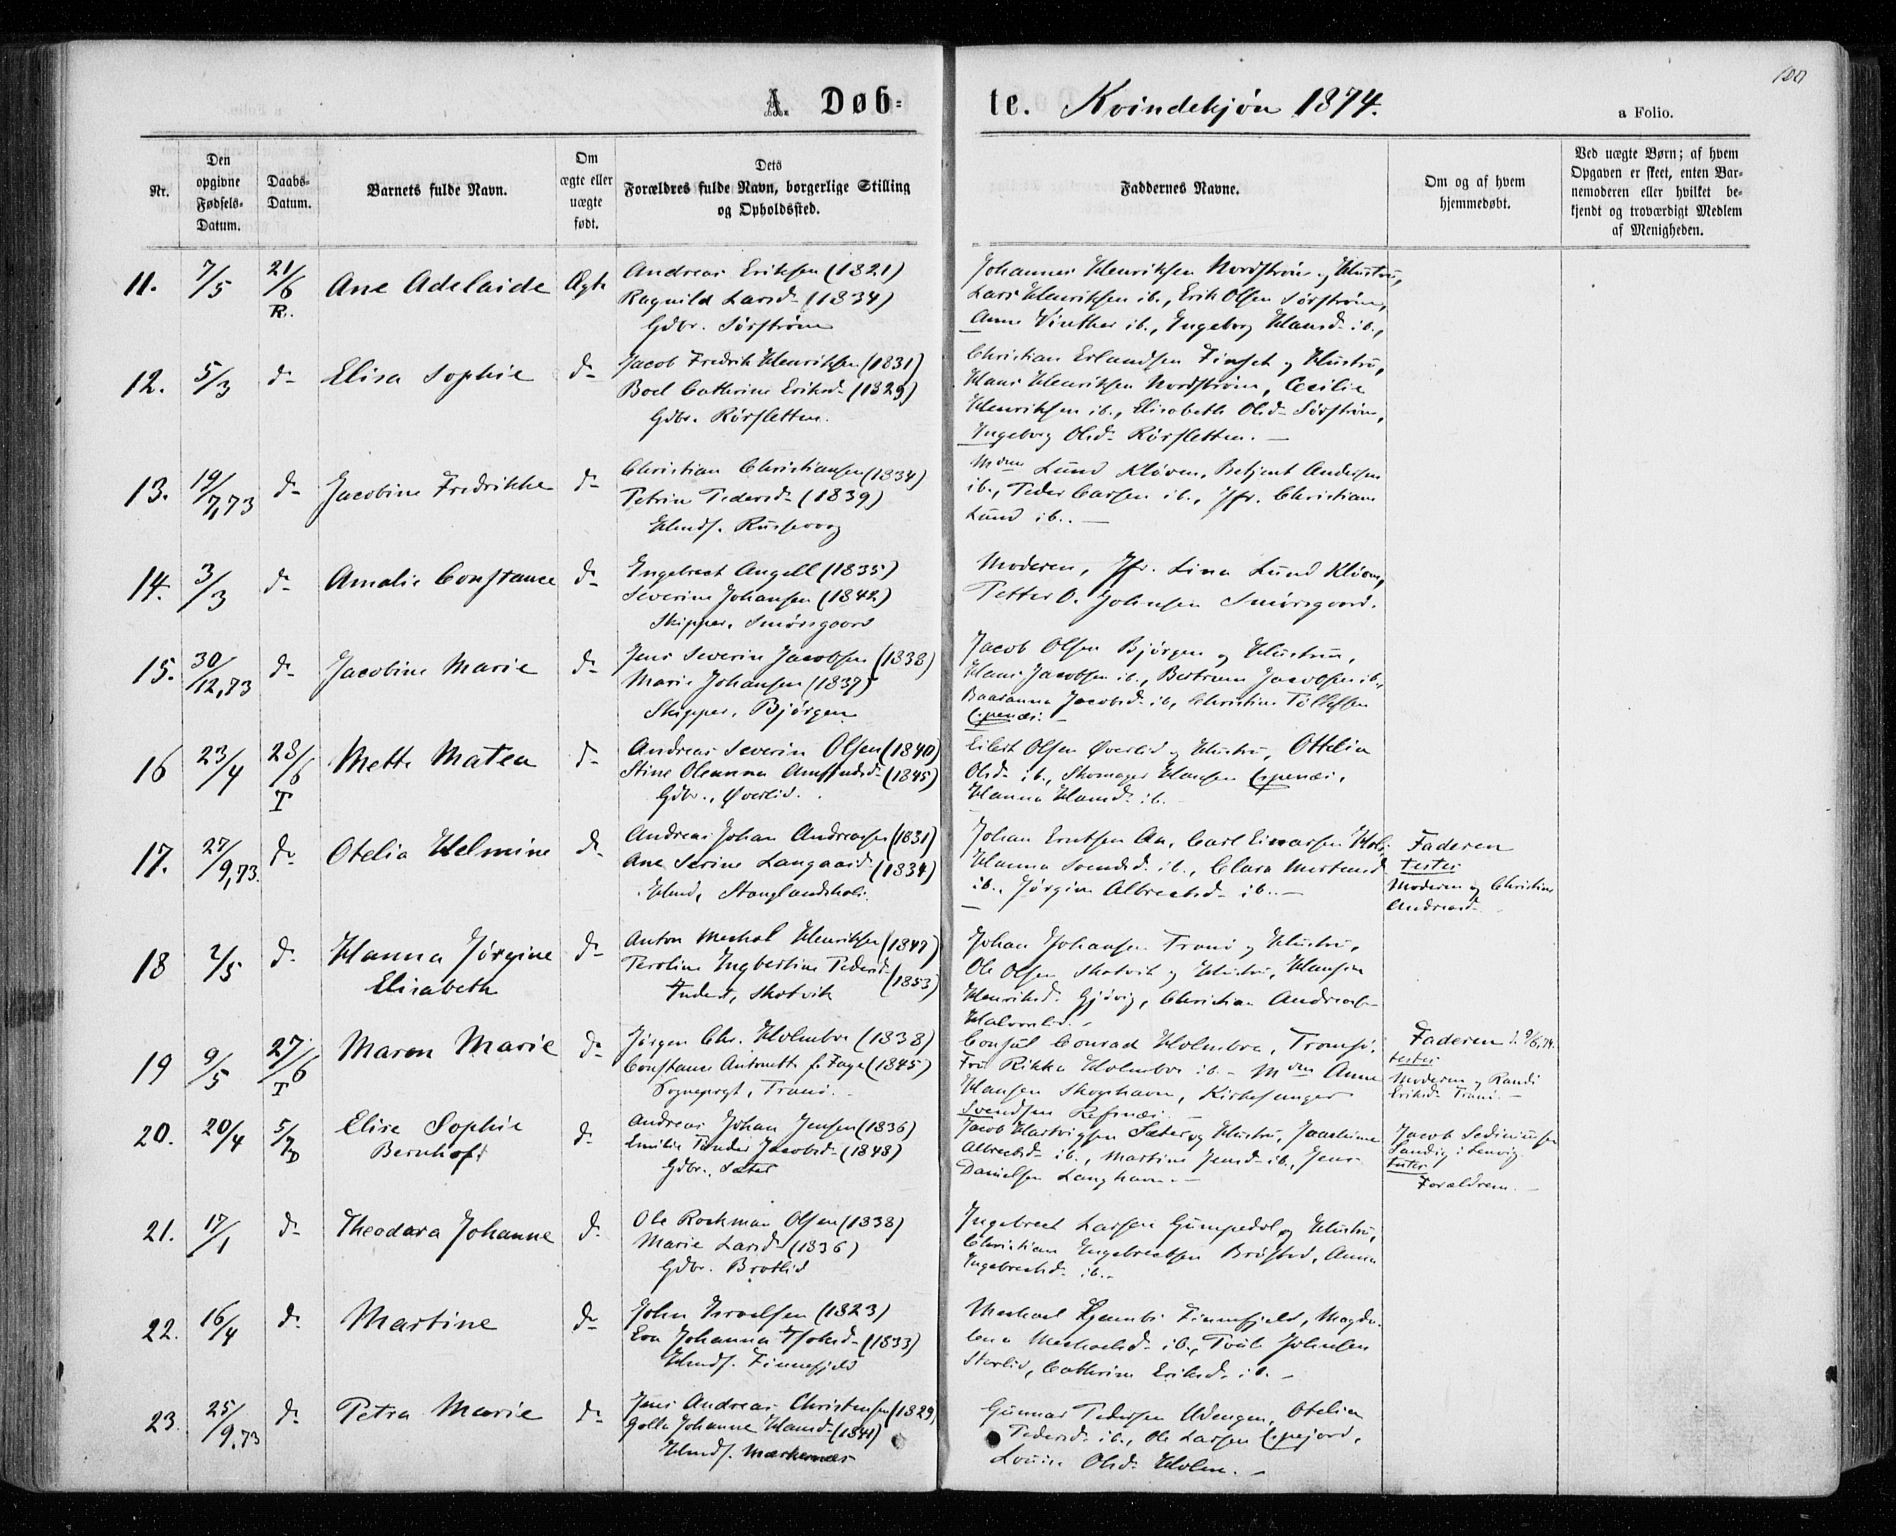 100
A. Døb-
te. Kvindekjøn 1874.
a Folio.
Nr.
Den opgivne Fødsels-Datum.
Daabs-Datum.
Barnets fulde Navn.
Om ægte eller uægte født.
Dets Forældres fulde Navn, borgerlige Stilling og Opholdssted.
Faddernes Navne.
Om og af hvem hjemmedøbt.
Ved uægte Børn; af hvem Opgaven er skeet, enten Barnemoderen eller hvilket bekjendt og troværdigt Medlem af Menigheden.
11. 7/5 21/6 R. Ane Adelaide Ægte
Andreas Eriksen (1821)
Ragnild Larsd. (1834)
Gdbr. Sørstrøm
Johannes Henriksen Nordstrøm og Hustru,
Lars Henriksen ib., Erik Olsen Sørstrøm,
Anne Vinther ib., Ingeborg Hansd. ib.,
12. 5/3 do Elisa Sophie do
Jacob Fredrik Henriksen (1831)
Boel Cathrine Eriksd. (1829)
Gdbr. Rørsletten.
Christian Erlandsen Finset og Hustru,
Hans Henriksen Nordstrøm, Cecilie
Henriksen ib., Elisabeth Olsd. Sørstrøm,
Ingeborg Olsd. Rørsletten.
13. 19/7,73 do Jacobine Fredrikke do
Christian Christiansen (1834)
Petrine Pedersd. (1839)
Hmd. Russevog
Mdm Lund Kløven, Betjent Andersen
ib., Peder Carsen ib., Jfr. Christiane
Lund ib.
14. 3/3 do Amalie Constance do
Engebrect Angell (1835)
Severine Johansen (1842)
Skipper, Smørsgaard
Moderen, Jfr. Lina Lund Kløven,
Petter O. Johnsen Smørsgaard.
15. 30/12,73 do Jacobine Marie do
Jens Severin Jacobsen (1838)
Marie Johansen (1837)
Skipper, Bjørgen
Jacob Olsen Bjørgen og Hustru,
Hans Jacobsen ib., Bertram Jacobsen ib.,
Jacobsd. ib., Christine Tollefsen
16 23/4 28/6 T Mette Matea do
Andreas Severin Olsen (1840)
Stine Oleanna Amundsd. (1845)
Gdbr., Øverlid.
Eilert Olsen Øverlid og Hustru, Ottelia
Olsd. ib., Skomager Hansen
Hanna Hansd. ib.
17. 27/9,73. do Otelia Helmine do
Andreas Johan Andreasen (1831)
Ane Serine Langaard (1834)
Hmd, Stanglandshals.
Johan Erntsen Aa, Carl Einarsen
Hanna Svendsd. ib., Clara Mortensd
ib., Jørgine Albrectsd. ib.
Faderen
testes
Moderen og Christine
Andreasd.
18 2/5 do Hanna Jørgine
Elisabeth do
Anton Mechal Henriksen (1847)
Peroline Ingbertine Pedersd. (1853)
Inderst, Skotvik
Johan Johansen Tranø og Hustru,
Ole Olsen Skotvik og Hustru, Hansine
Henriksd. Gjøvig, Christian Andreas
19 9/5 27/6 T Maren Marie do
Jørgen Chr. Holmboe (1838)
Constance Antonette f. Faye (1845)
Sogneprest, Tranø.
Consul Conrad Holmboe, Tromsø,
Fru Rikka Holmboe ib. Mdm Anne
Hansen Skogshavn, Kirkesanger
Svendsen Refsnæs.
Faderen d. 9/6,74.
testes
Moderen og Randi
Eriksd. Tranø.
20. 20/4 5/7 D Elise Sophie
Bernhoft do
Andreas Johan Jensen (1836)
Emilie Jacobsd. (1848)
Gdbr. Sæter
Jacob Hartvigsen Sæter og Hustru, Joachime
Albrectsd. ib., Martine Jensd. ib., Jens
Danielsen Langhavn.
Jacob
Sandig i Lenvig
testes
Forældrene.
21. 17/1 do Theodora Johanne do
Ole Rochman Olsen (1838)
Marie Larsd. (1836)
Gdbr. Bratlid
Ingebrect Larsen Gumpedal og Hustru,
Christian Engebrectsen Brøsted, Anna
Ingebrectsd. ib.
22. 16/4 do Martine do
John Israelsen (1823)
Eva Johanna (1833)
Hmd. Finnefjeld
Mechael Finnefjeld, Magda-
lena Mechaelsd. ib., Johnsen
Storlid, Cathrine Eriksd. ib.
23. 25/9,73 do Petra Marie do
Jens Andreas Christensen (1829)
Johanne Hansd. (1841)
Hmd. Mærkenæs
Gunnar Pedersen Udengen, Otelia
Pedersd. ib., Ole Larsen
Louise Olsd. Holm.